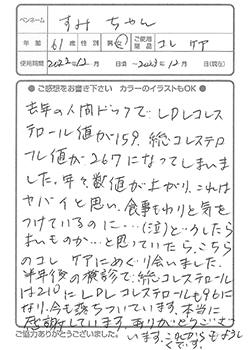 ペンネーム すみちゃん
年齢 61才 性別 男・女 ご使用商品 コレケア
使用期間 2022年12月 日～2023年12月 日(現在)
●ご感想をお書き下さい カラーのイラストもOK●
去年の人間ドックで、LDLコレス
テロール値が159、総コレステロ
ール値が267になってしまいま
した。年々数値が上がり、これは
ヤバイと思い、食事もわりと気を
つけているのに…(泣)どうしたら
よいものか…と思っていたら、こちら
のコレケアにめぐり会いました。
半年後の検診で、総コレステロール
は210にLDLコレステロールも96に
なり、今も落ちついています。本当に
感謝しています。ありがとうござい
います。これからもよろしく
です。
ご協力ありがとうございました。